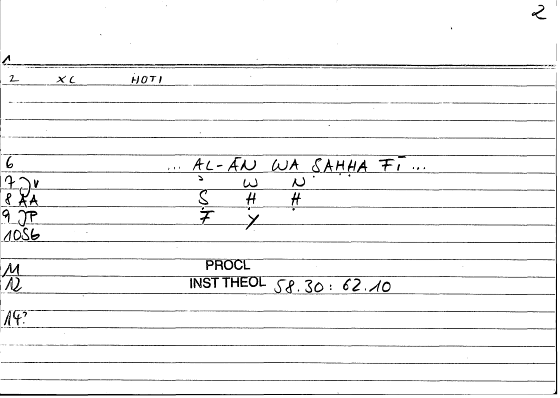 2
1
2 XC HOTI
6 ... AL-ĀN WA ṢAḤḤA FĪ ...
7 JV ʾ W N
8 AA Ṣ Ḥ Ḥ
9 JP F Y
10 SG
11 PROCL
12 INST THEOL 58.30 : 62.10
14?